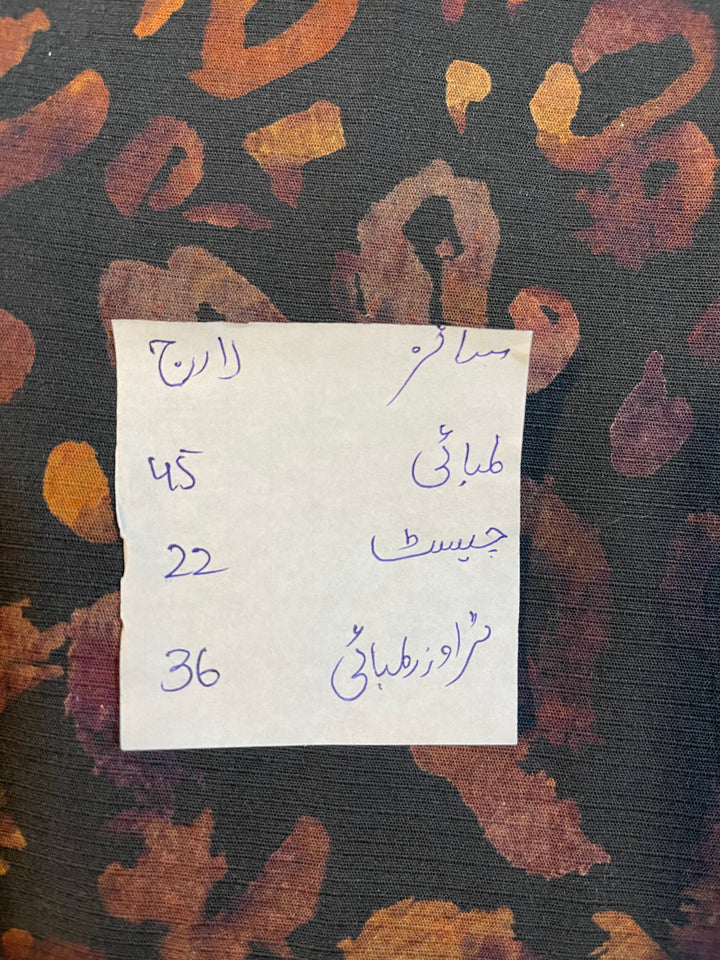 سائز لارج
لمبائی 45
چیسٹ 22
ٹراوزر لمبائی 36